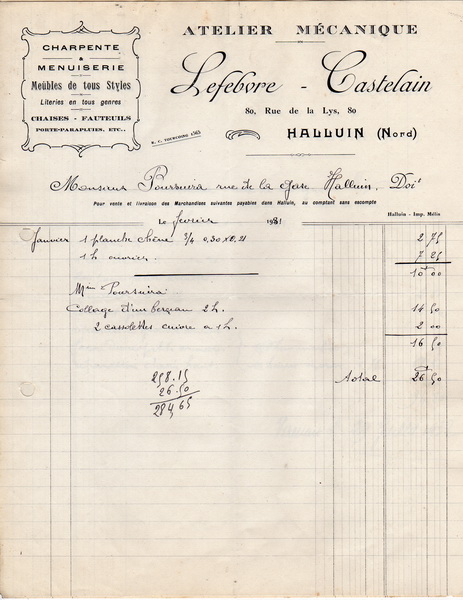 CHARPENTE
&
MENUISERIE
Meubles de tous Styles
Literies en tous genres
CHAISES - FAUTEUILS
PORTE-PARAPLUIES, ETC..
ATELIER MÉCANIQUE
Lefebvre - Castelain
80, Rue de la Lys, 80
HALLUIN (Nord)
R. C. TOURCOING 1565
Monsieur rue de la Gare Halluin, Doit
Pour vente et livraison des Marchandises suivantes payables dans Halluin, au comptant sans escompte
Halluin - Imp. Mélis
Le février 1931
Janvier 1 planche chêne 3/4 0,30 x 0,21 2 75
1 h ouvrier 7 25
10 00
Collage d'un 2 h. 14 50
2 cassolettes cuivre a 1 h. 2 00
16 50
Total 26 50
258.15
26.50
284,65